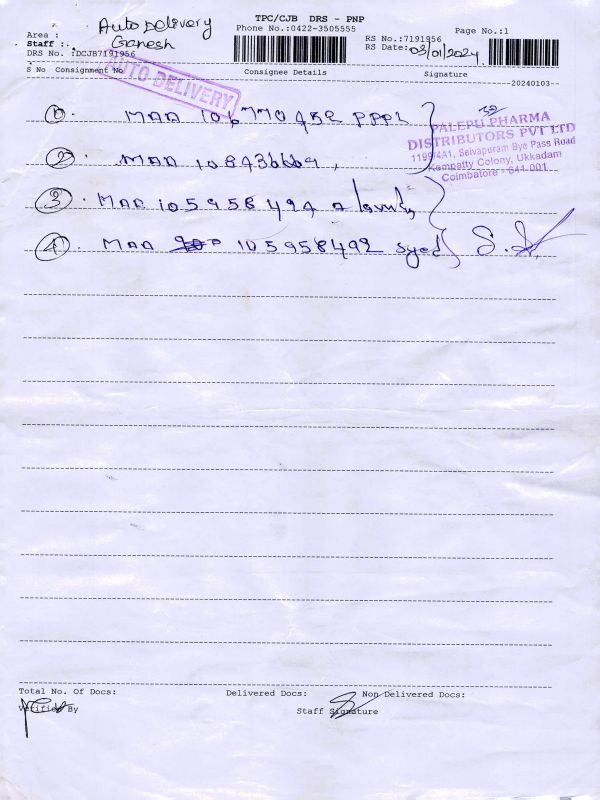 TPC/CJB DRS - PNP
Area : Auto Delivery
Phone No.:0422-3505555
Page No.:1
Staff : Ganesh
RS No.:7191956
DRS No. :DCJB7191956
RS Date: 03/01/2024
S No Consignment No Consignee Details Signature
20240103
AUTO DELIVERY
① MAA 106770452 PPPL
PALEPU PHARMA
DISTRIBUTORS PVT LTD
1199/4A1, Selvapuram Bye Pass Road
Kempatty Colony, Ukkadam
Coimbatore - 641 001
② MAA 108436669
③ MAA 105958494
④ MAA 105958492 Syed
Total No. Of Docs: Delivered Docs: Non Delivered Docs:
Verified By Staff Signature